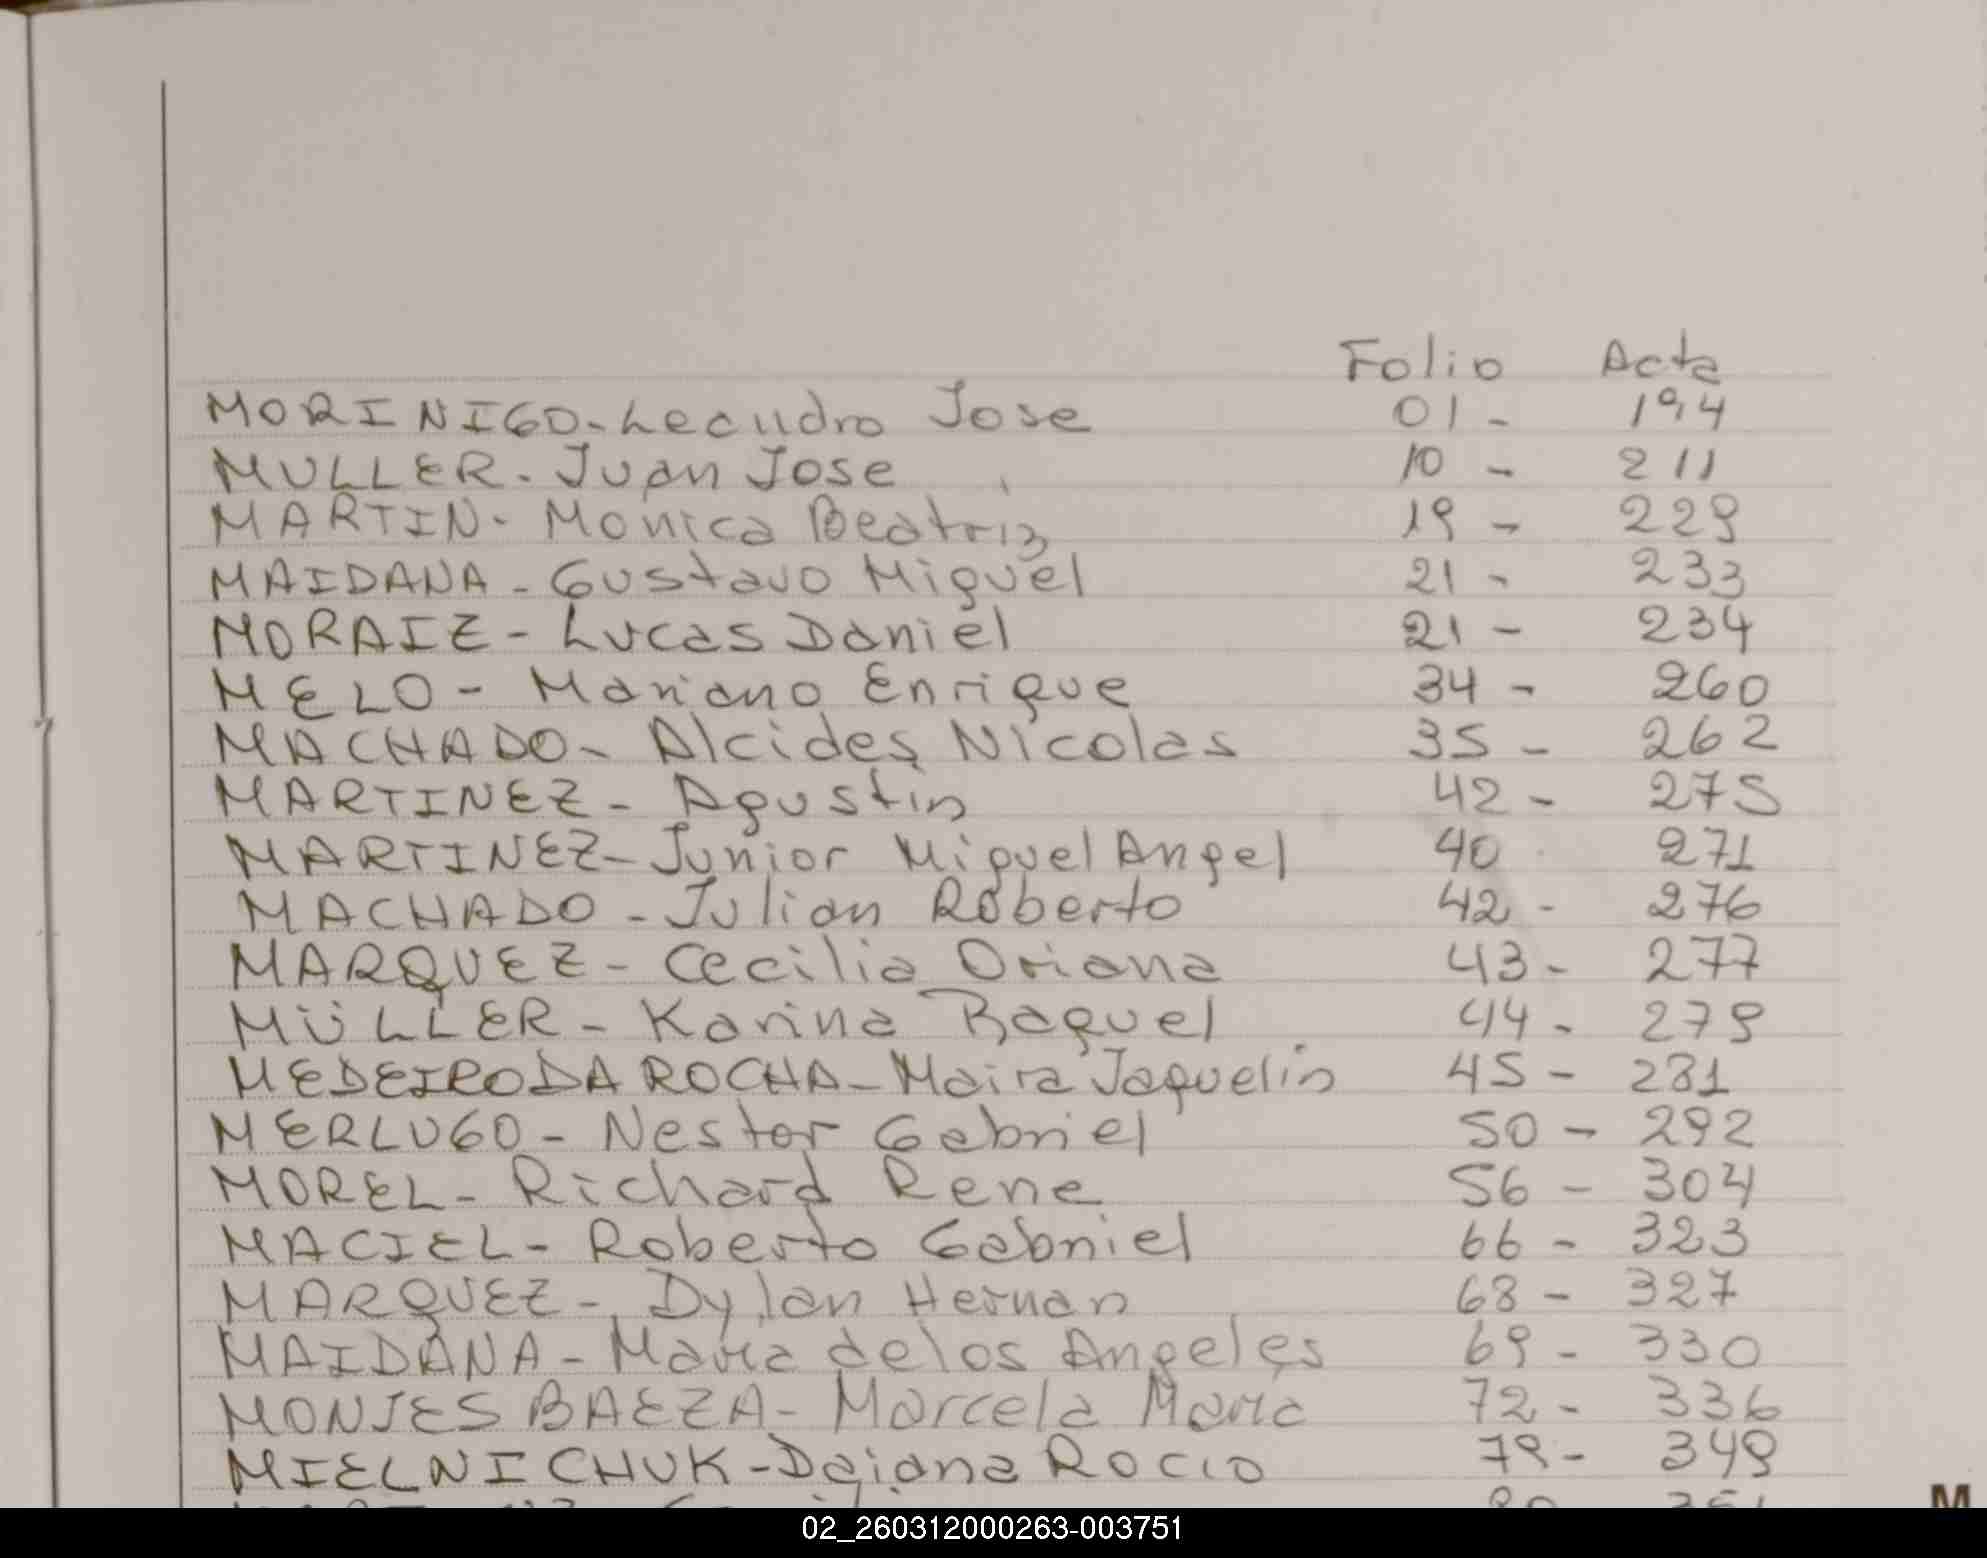 Folio Acta
MORINIGO - Leandro Jose 01 - 194
MULLER - Juan Jose 10 - 211
MARTIN - Monica Beatriz 19 - 229
MAIDANA - Gustavo Miguel 21 - 233
MORAIZ - Lucas Daniel 21 - 234
MELO - Mariano Enrique 34 - 260
MACHADO - Alcides Nicolas 35 - 262
MARTINEZ - Agustin 42 - 275
MARTINEZ - Junior Miguel Angel 40 271
MACHADO - Julian Roberto 42 - 276
MARQUEZ - Cecilia Oriana 43 - 277
MÜLLER - Karina Raquel 44 - 279
MEDEIRO DA ROCHA - Maira Jaquelin 45 - 281
MERLUGO - Nestor Gabriel 50 - 292
MOREL - Richard Rene 56 - 304
MACIEL - Roberto Gabriel 66 - 323
MARQUEZ - Dylan Hernan 68 - 327
MAIDANA - Maria de los Angeles 69 - 330
MONJES BAEZA - Marcela Maria 72 - 336
MIELNICHUK - Daiana Rocio 79 - 349
M
02_260312000263-003751